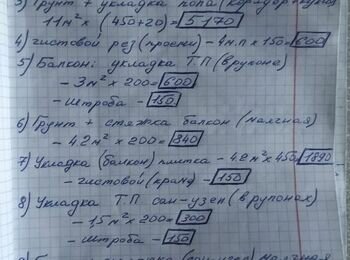 3) Грунт + укладка пола (коридор+кухня
11м² x (450+20)= 5170
4) Чистовой рез (проёмы) - 4м.п x 150= 600
5) Балкон: укладка Т.П (в рулоне)
- 3м² x 200= 600
- Штроба - 150
6) Грунт + стяжка балкон (наличная)
- 4,2м² x 200= 840
7) Укладка (балкон) плитка - 4,2м² x 450= 1890
- чистовой (кранд) - 150
8) Укладка Т.П сан-узел (в рулонах)
- 1,5м² x 200= 300
- Штроба - 150